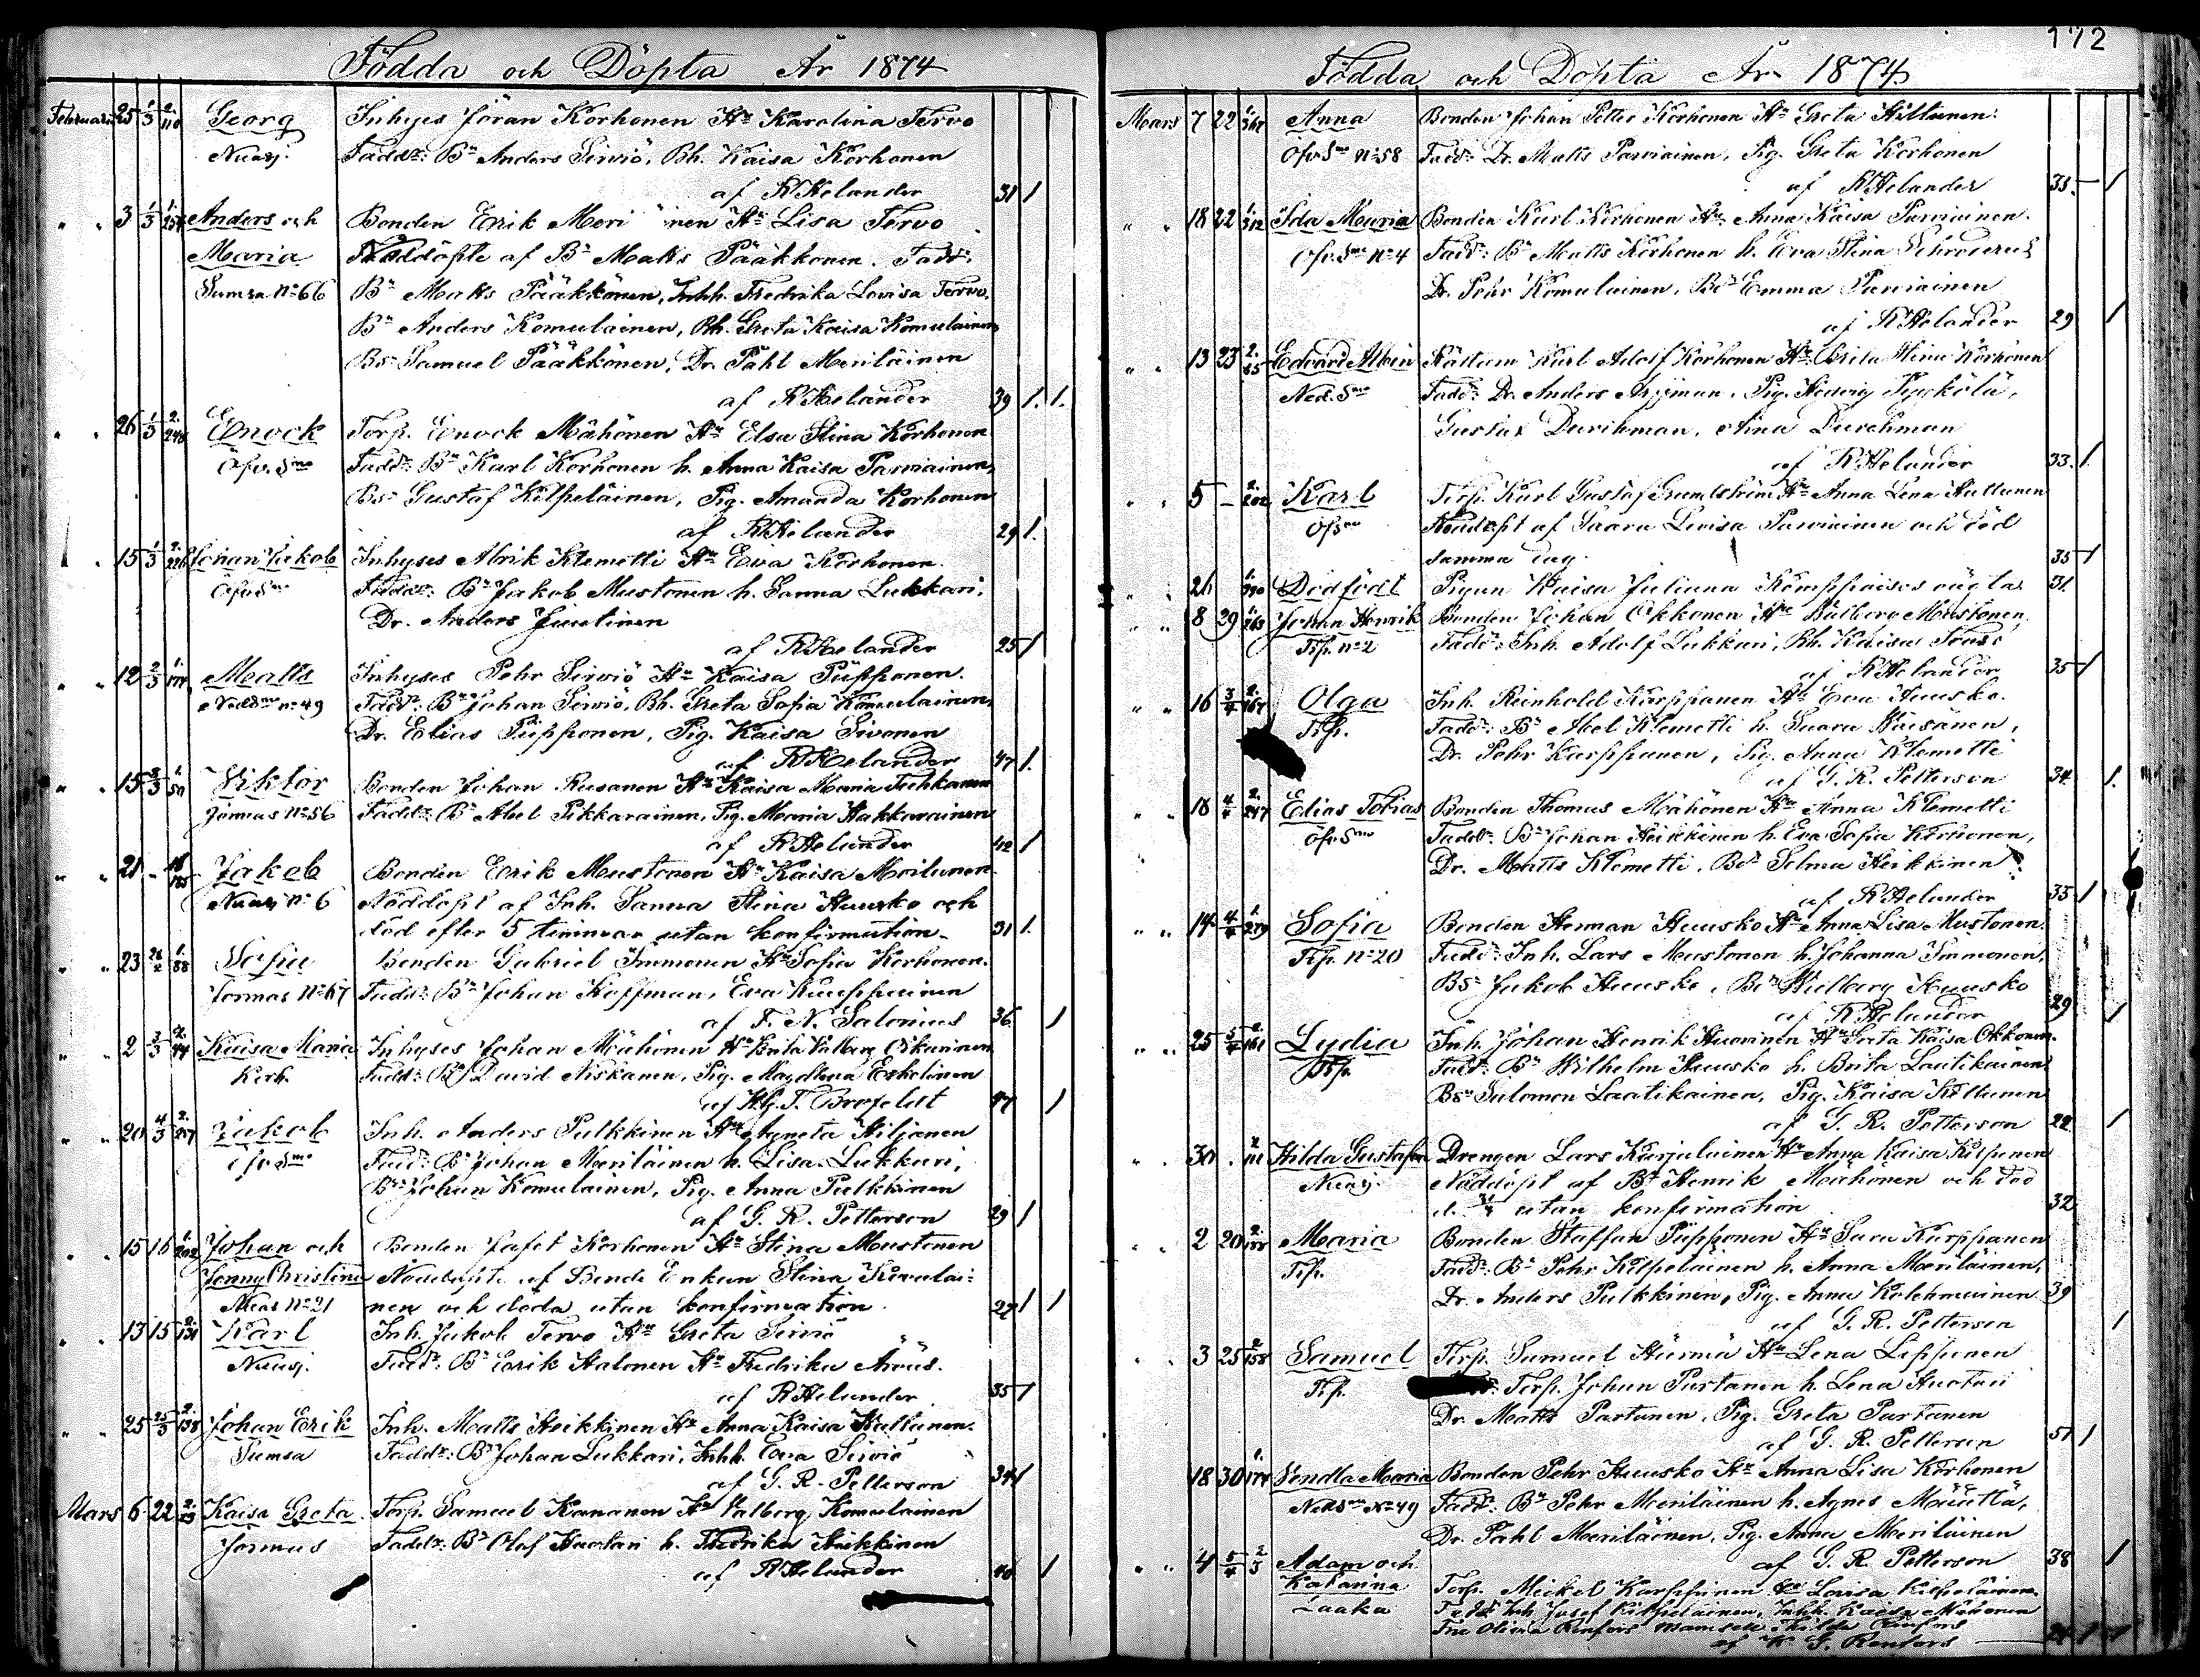 172
Födda och Döpta År 1874
Februari 25 1/3 2. 110 Georg Inhyses Jöran Korhonen Hu Karolina Tervo
Nuasj. Fadd: Bn Anders Sirviö, Bh. Kaisa Korhonen
af R Helander 31 1
" " 3 1/3 1 254 Anders och Bonden Erik Meri nen Hu Lisa Tervo
Maria Nöddöpte af Bn Matts Pääkkönen. Fadd:
Sumsa No 66 Bn Matts Pääkkönen, Inhh. Fredrika Lovisa Tervo,
Bn Anders Komulainen, Bh. Greta Kaisa Komulainen
Bs Samuel Pääkkönen, Dr. Påhl Meriläinen
af R Helander 39 1. 1.
" " 26 1/3 2. Enock Torp. Enock Mähönen Hu Elsa Stina Korhonen
Öfv. Smo Fadd: Bn Karl Korhonen h. Anna Kaisa Parviainen,
Bs Gustaf Kilpeläinen, Pig. Amanda Korhonen
af R Helander 29 1.
" 15 1/3 2. Johan Jakob Inhyses Alrik Klemetti Hu Eva Korhonen.
Öfv. Smo Fadd: Bn Jakob Mustonen h. Sanna Lukkari,
Dr. Anders Juutinen
af R Helander 25 1
" " 12 2/3 1. Matts Inhyses Pehr Sirviö Hu Kaisa Piipponen.
Ned Smo no 49 Fadd: Bn Johan Sirviö, Bh. Greta Sofia Komulainen,
Dr. Elias Piipponen, Pig. Kaisa Sivonen
af R Helander 47 1.
" " 15 1. 50 Viktor Bonden Johan Rusanen Hu Kaisa Maria Tuhkanen
Jormas No 56 Fadd: Bn Abel Pikkarainen, Pig. Maria Hakkarainen
af R Helander 42 1
" " 21 - Jakob Bonden Erik Mustonen Hu Kaisa Moilanen.
Nuasj No 6 Nöddöpt af Inh. Sanna Stina Huusko och
död efter 5 timmar utan konfirmation. 31 1.
" " 23 1. 88 Sofia Bonden Gabriel Immonen Hu Sofia Korhonen.
Jormas No 67 Fadd: Bn Johan Koffman, Eva Kauppinen
af F. N. Salonius 36. 1
" " 2 2/3 2. Kaisa Maria Inhyses Johan Mähönen Hu Brita Valborg Oikarinen
Kerh. Fadd: Bn David Niskanen, Pig. Magdlena Eskelinen
af H. G. T. Brofeldt 47 1
" " 20 4/3 2. 247 Jakob Inh. Anders Pulkkinen Hu Agneta Hiljanen
Öfv. Smo Fadd: Bn Johan Meriläinen h. Lisa Lukkari,
Bn Johan Komulainen, Pig. Anna Pulkkinen
af G. R. Petterson 29 1
" " 15 16 1. 202 Johan och Bonden Jafet Korhonen Hu Stina Mustonen
Jenny Christina Nöddöpte af Bonde Enkan Stina Kovalai-
Nuas No 21 nen och döda utan konfirmation. 29 1 1
" " 13 15 2. 131 Karl Inh. Jakob Tervo Hu Greta Sirviö
Nuasj. Fadd: Bn Erik Halonen Hu Fredrika
af R Helander 35 1
" " 25 25/3 2. 138 Johan Erik Inh. Matts Heikkinen Hu Anna Kaisa Hallunen.
Sumsa Fadd: Bn Johan Lukkari, Inhh. Eva Sirviö
af G. R. Petterson 34 1
Mars 6 22 2. Kaisa Greta Torp. Samuel Kananen Hu Valborg Komulainen
Jormus Fadd: Bn Olof Huotari h. Fredrika Heikkinen
af R Helander 40 1
Födda och Döpta År 1874
Mars 7 22 1 Anna Bonden Johan Petter Korhonen Hu Greta Hiltunen.
Öfv Smo No 58 Fadd: Dr. Matts Parviainen, Pig. Greta Korhonen
af R Helander 35. - 1
" " 18 22 1 312 Ida Maria Bonden Karl Korhonen Hu Anna Kaisa Parviainen.
Öfv. Smo no 4 Fadd: Bn Matts Korhonen h. Eva Stina Schroderus
Dr. Pehr Komulainen, Bdr Emma Parviainen
af R Helander 29 1
" " 13 23 2. Edvard Albin Rättaren Karl Adolf Korhonen Hu Brita Stina Korhonen
Ned. Smo Fadd: Dr. Anders Pig. Hedvig Pyykölä,
Gustaf Durchman, Aina Durchman
af R Helander 33. 1.
" " 5 - 2. 202 Karl Torp. Karl Gustaf Grundström Hu Anna Lena Hallunen
Öfvsmo Nöddöpt af Saara Lovisa Parviainen och död
samma dag. 35 1
" " 26 Dödfödt Pigan Kaisa Juliana Komppaises oägta. 31.
" " 8 29 1 263 Johan Henrik Bonden Johan Okkonen Hu Valborg Mustonen
Tip. no 2 Fadd: Inh. Adolf Lukkari, Bh. Kaisa
af R Helander 35 1
" " 16 3/4 2. 167 Olga Inh. Reinhold Karppanen Hu Eva Huusko.
Tip. Fadd: Bn Abel Klemetti h. Saara Väisänen,
Dr. Pehr Karppanen, Pig. Anna Klemetti
af G. R. Petterson 34 1.
" " 18 4/4 2. 247 Elias Tobias Bonden Thomas Mähönen Hu Anna Klemetti
Öfv Smo Fadd: Bn Johan Heikkinen h. Eva Sofia Korhonen,
Dr. Matts Klemetti, Bdr Selma Heikkinen
af R Helander 35 1
" " 14 4/4 1 279 Sofia Bonden Herman Huusko Hu Anna Lisa Mustonen.
Tip. No 20 Fadd: Inh. Lars Mustonen h. Johanna Immonen,
Bs Jakob Huusko, Bdr Valborg Huusko
af R Helander 29 1
" " 25 5/4 2. 161 Lydia Inh. Johan Henrik Huovinen Hu Greta Kaisa Okkonen.
Tip. Fadd: Bn Wilhelm Huusko h. Brita Laatikainen
Bs Salomon Laatikainen, Pig. Kaisa Keltunen
af G. R. Petterson 22 1
" " 30 . 2 Hilda Gustafva Drengen Lars Karjalainen Hu Anna Kaisa Kilpinen
Nuasj. Nöddöpt af Bn Henrik Mähönen och död
utan konfirmation 32
" " 2 20 2. Maria Bonden Staffan Piipponen Hu Sara Karppanen
Tip. Fadd: Bn Pehr Kilpeläinen h. Anna Meriläinen,
Dr. Anders Pulkkinen, Pig. Anna Kolehmainen 39
af G. R. Petterson 1
" " 3 25 2 158 Samuel Torp. Samuel Härmä Hu Lena Leppänen
Tip. Torp. Johan Partanen h. Lena Huotari
Dr. Matts Partanen, Pig. Greta Partanen
af G. R. Petterson 51 1
18 30 1 174 Vendla Maria Bonden Pehr Huusko Hu Anna Lisa Korhonen
Ned Smo No 49 Fadd: Bn Pehr Meriläinen h. Agnes Määttä,
Dr. Påhl Meriläinen, Pig. Anna Meriläinen
af G. R. Petterson 38 1
" " 4 5/4 2 3 Adam och
Katarina Torp. Mickel Karppinen Hu Lovisa Kilpeläinen
Laaka Fadd: Inh. Josef Kilpeläinen, Inhh. Kaisa Mähönen
Fru Olivia Renfors Mamsell Hilda Renfors
af K. G. Renfors 1 1